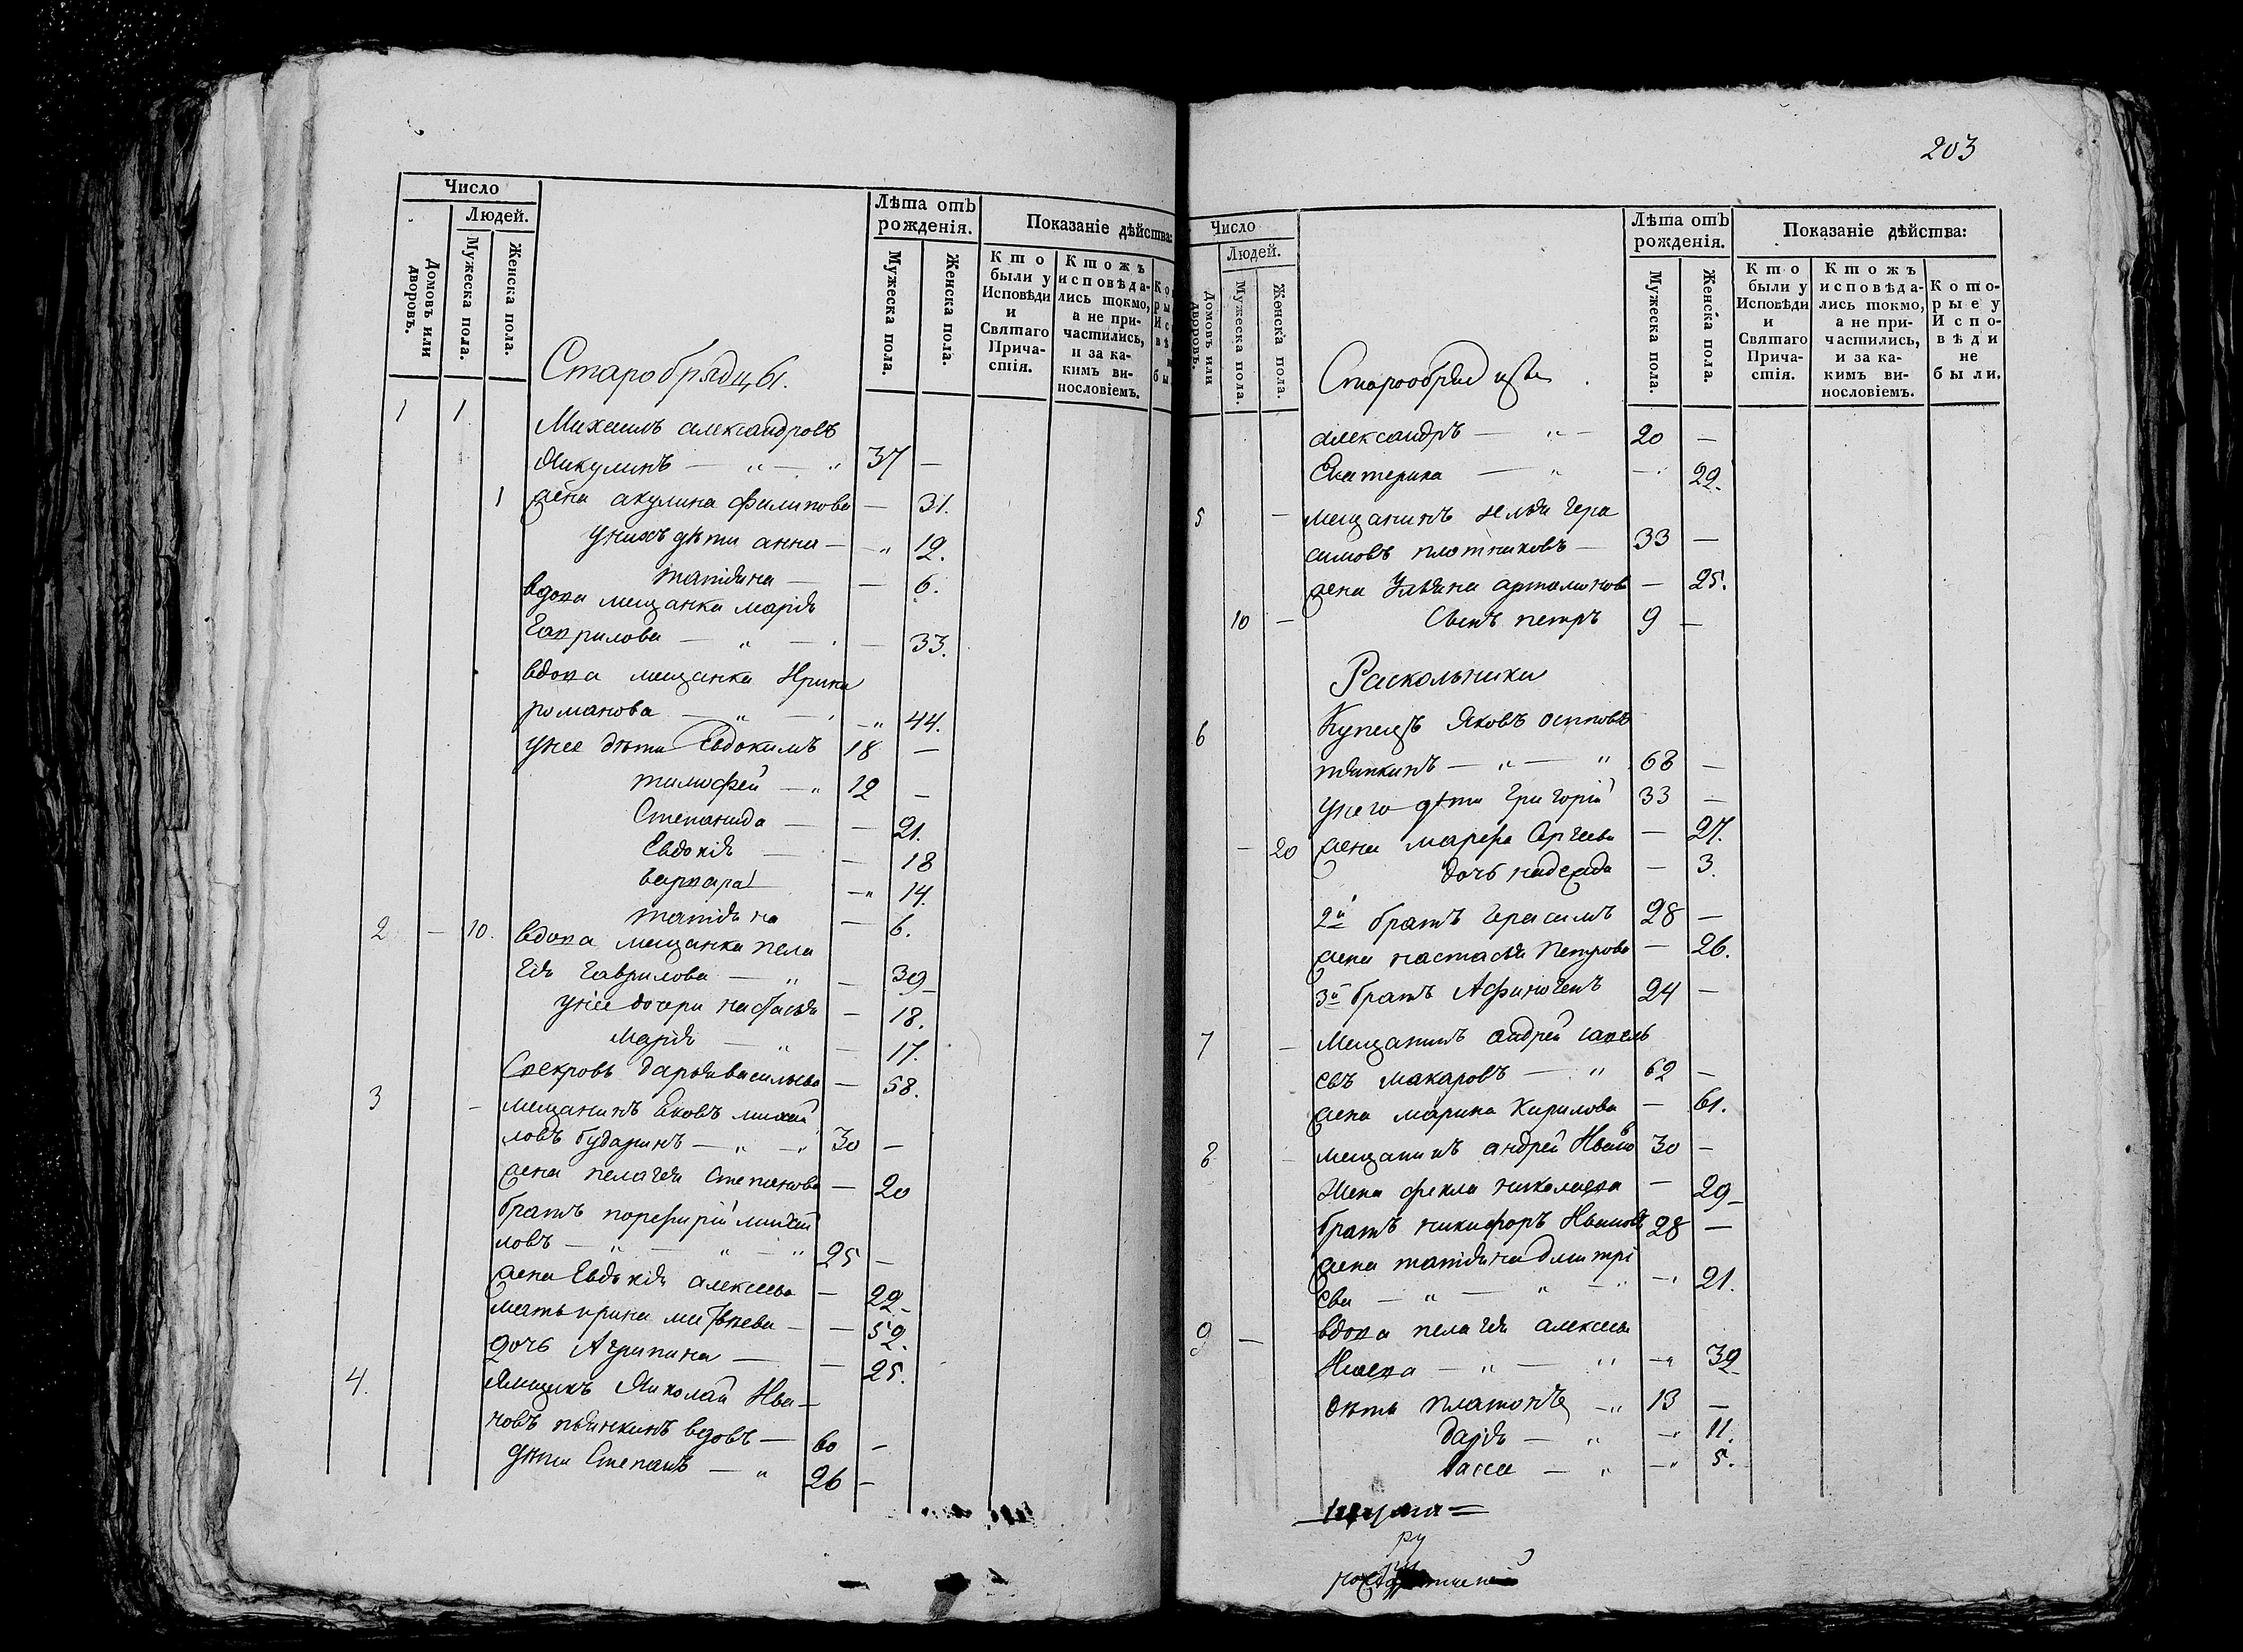 Число
Людей.
Домовъ или дворовъ.
Мужеска пола.
Женска пола.
Лѣта отъ рожденія.
Мужеска пола.
Женска пола.
Показаніе дѣйства:
Кто были у Исповѣди и Святаго Причастія.
Ктожъ исповѣдались токмо, а не причастились, и за какимъ винословіемъ.
Старобрядцы.
1 1 Михаилъ александровъ
Никулинъ — " — " 37 —
1 жена акулина филипова — 31.
у нихъ дѣти анна — " 12.
татіяна — — 6.
вдова мещанка марія
Гаврилова — " — — 33.
вдова мещанка Ирина
романова — " — — " 44.
у нее дѣти Евдокимъ 18 —
тимофей — " 12 —
Степанида — — 21.
Евдокія — — 18
варвара — " 14.
татіяна — 6.
2 — 10. вдова мещанка пела
гія гаврилова — " — 39
у нее дочери настасья — 18.
марія — " — 17.
Свекровь дарья васильева — 58.
3 — мещанинъ Яковъ михай
ловъ бударинъ — " — " 30 —
жена пелагея степанова — 20
братъ порфирій михай
ловъ — " — " — " 25 —
жена Евдокія алексеева — 22
мать ирина матвеева — — 52.
дочь Агрипина — — 25.
4. Ямщикъ Николай Ива—
новъ пьянкинъ вдовъ — 60 —
дѣти Степанъ — " 26 —
203
Число
Людей.
Домовъ или дворовъ.
Мужеска пола.
Женска пола.
Лѣта отъ рожденія.
Мужеска пола.
Женска пола.
Показаніе дѣйства:
Кто были у Исповѣди и Святаго Причастія.
Ктожъ исповѣдались токмо, а не причастились, и за какимъ винословіемъ.
Которые у Исповѣди не были.
Старообрядцы
александръ — " — 20 —
Екатерина — " — 22.
5 — мещанинъ илья гера
симовъ плотниковъ — 33 —
жена Ульяна артамонова — 25.
10 — Сынъ петръ 9 —
Раскольники
6 Купецъ Яковъ осиповъ
тяпкинъ — " — " 68 —
у него дѣти григорій 33 —
— 20 жена марфа Сергеева — 27.
дочь надежда — 3.
2й братъ герасимъ 28 —
жена настасья Петрова — 26.
3й братъ Афиногенъ 24 —
7 — Мещанинъ андрей савель
евъ макаровъ — " 62 —
жена марина Кирилова — 61.
8 — мещанинъ андрей Ивановъ 30 —
Жена фекла николаева — 29
братъ никифоръ Ивановъ 28 —
жена татіяна дмитрі
ева — " — " — " — " 21.
9 — вдова пелагея алексеева
— " — " — " 32
дѣти платонъ — " 13 —
дарія — " — " 11.
васса — " — " 5.